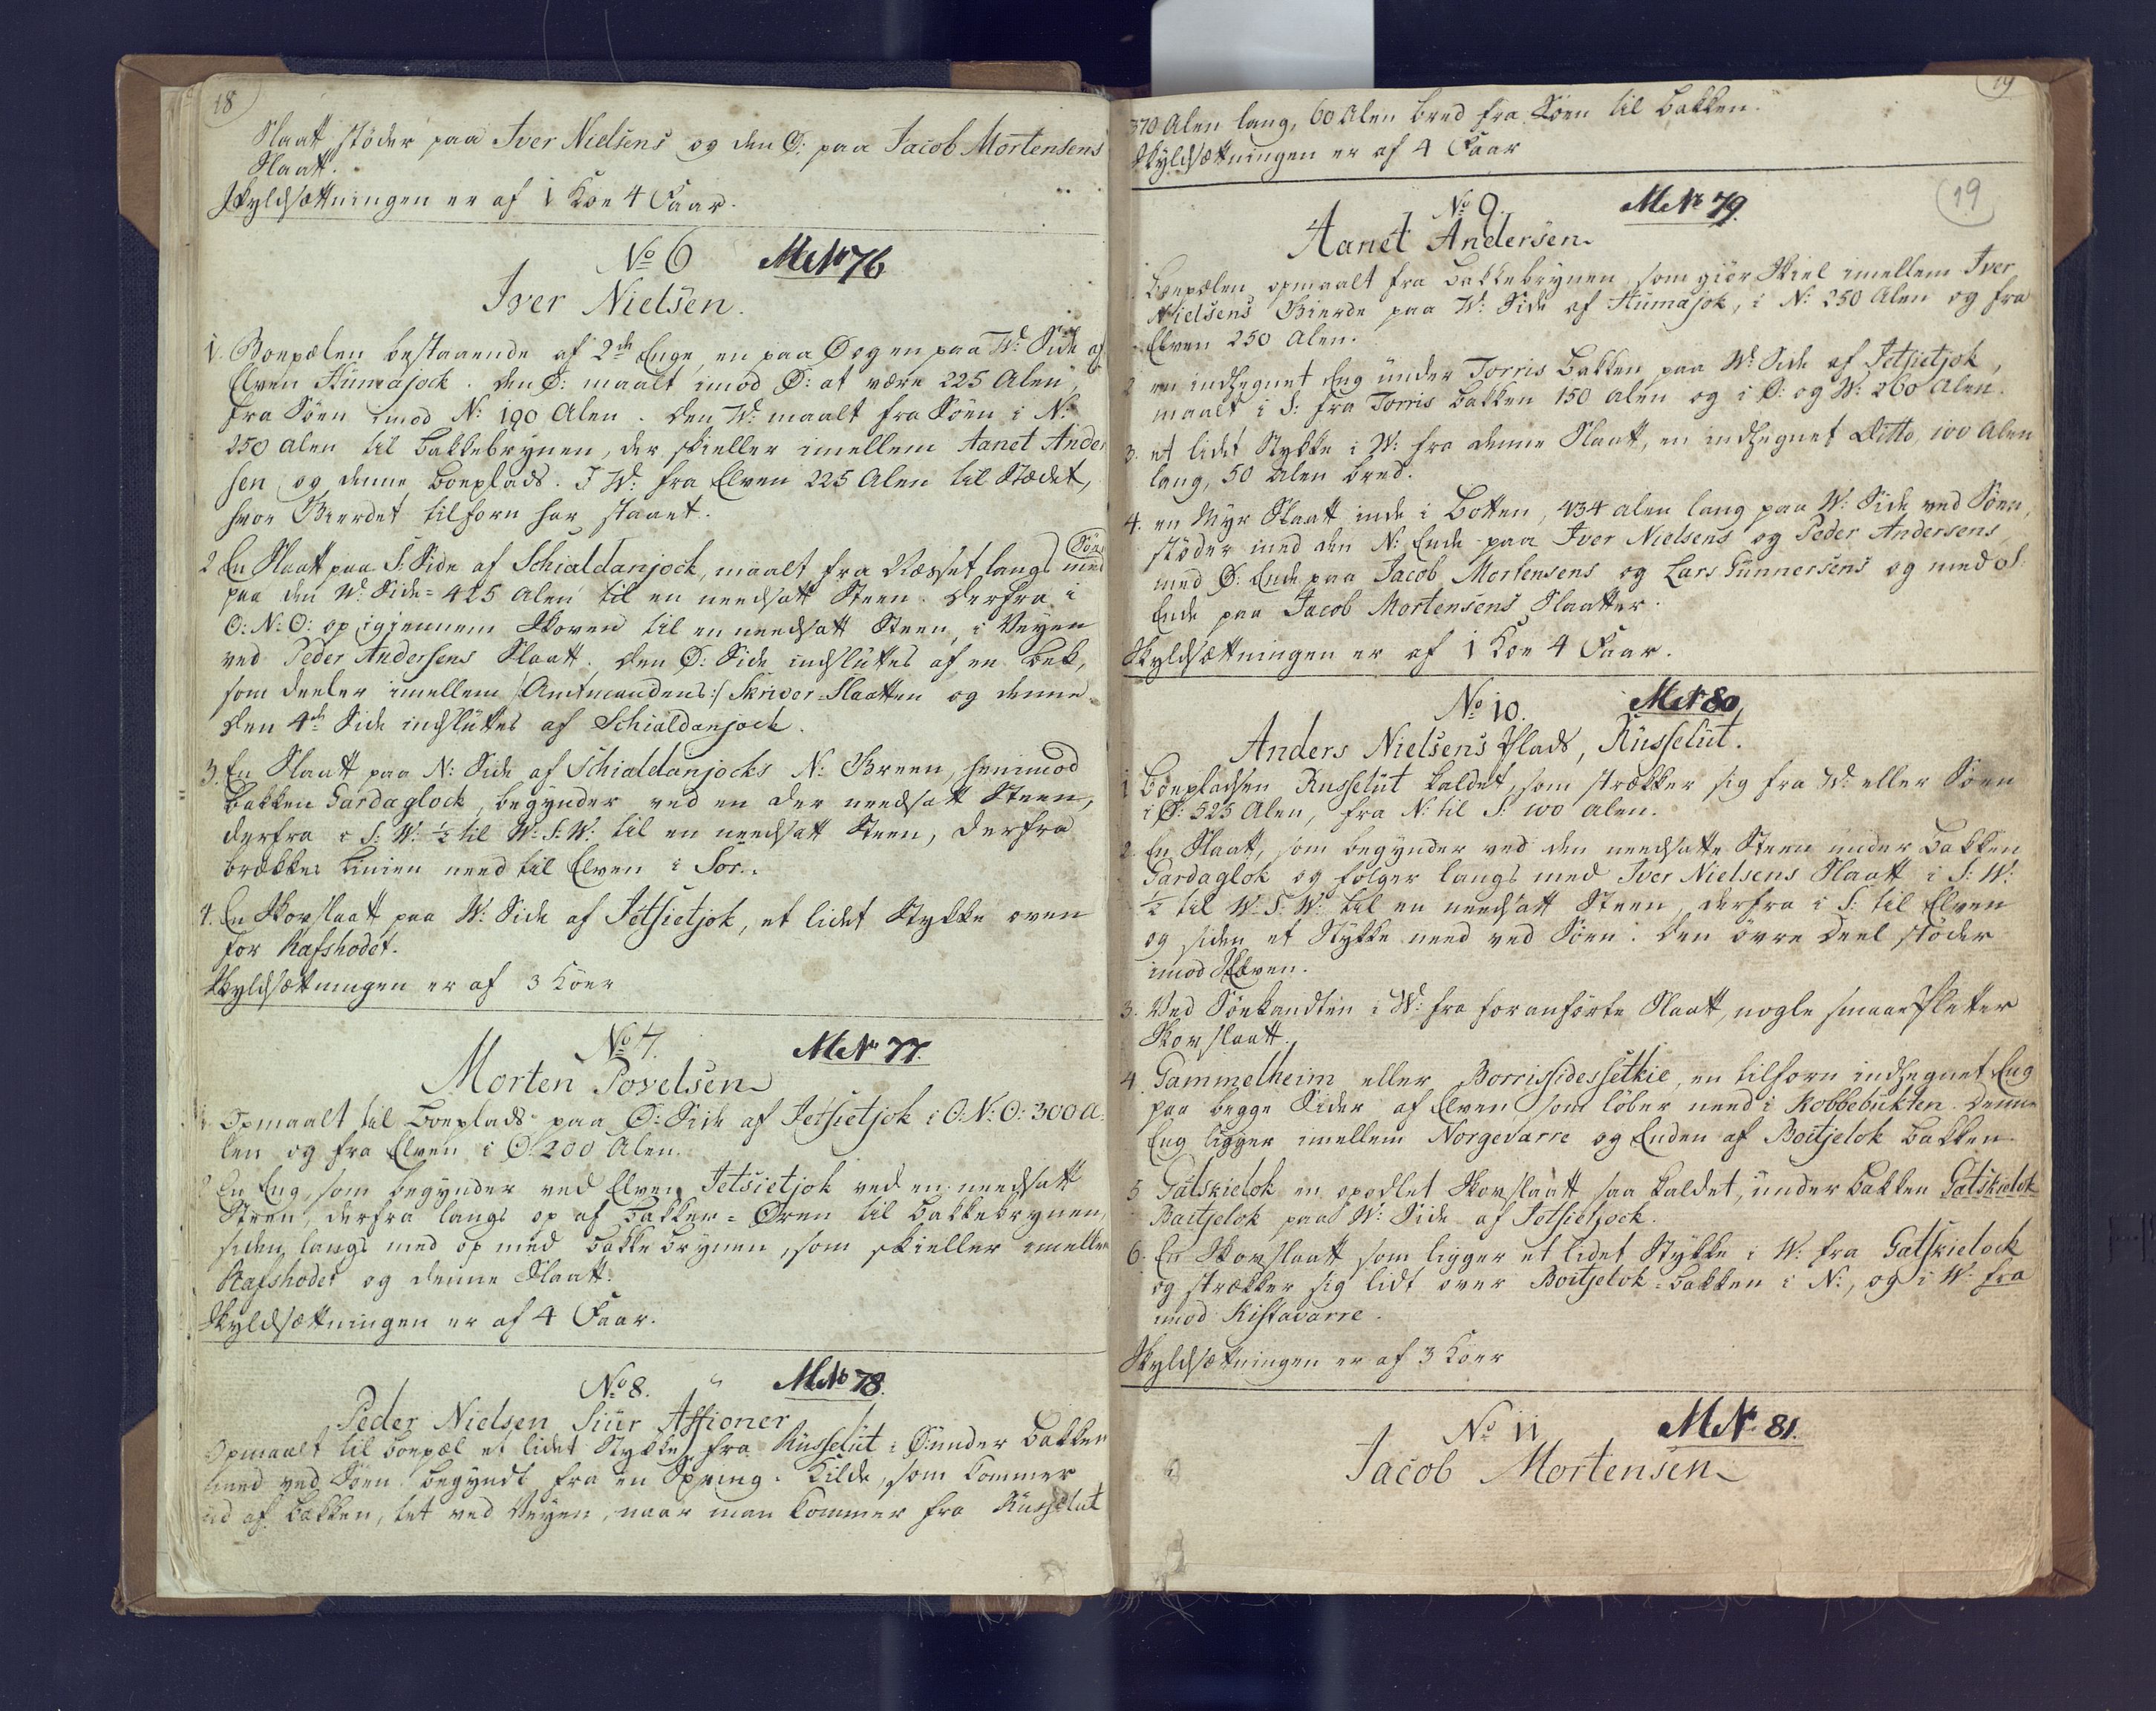 18
Slaatt støder paa Iver Nielsens og den Ø: paa Jacob Mortensens
Slaatt.
Skyldsættningen er af 1 Koe 4 Faar.
No 6 MNo 76
Iver Nielsen.
1. Boepælen bestaaende af 2de Enge, en paa Ø og en paa W: Side af
Elven Humajock. den Ø: maalt imod Ø: at være 225 Alen,
fra Söen imod N: 190 Alen. den W: maalt fra Söen i N:
250 alen til Bakkebrynen, der skieller imellem Aanet Ander
sen og denne Boeplads. I W: fra Elven 225 Alen til Stædet,
hvor Gierdet tilforn har staaet.
2 En Slaatt paa S: Side af Schialdanjock, maalt fra Næsset langs med Söen
paa den W: Side = 425 Alen til en needsatt Steen. Derfra i
O: N: O: op igiennem Skoven til en needsatt Steen, i Veyen
ved Peder Andersens Slaatt. Den Ø: Side indsluttes af en Bek,
som deeler imellem /Amtmandens:/ Skriver-Slaatten og denne
den 4de Side indsluttes af Schialdanjock.
3. En Slaatt paa N: Side af Schialdanjocks N: Green, henimod
Bakken Gardaglock, begynder ved en der needsatt Steen,
derfra i S: W: ½ til W: S: W: til en needsatt Steen, derfra
brækker Linien need til Elven i Sör.
4. En Skovslaatt paa W: Side af Jetsietjok, et lidet Stykke oven
for Rafshodet.
Skyldsættningen er af 3 Köer
No 7. MNo 77.
Morten Povelsen
1. Opmaalt til Boeplads paa Ø: Side af Jetsietjok i O: N: O: 300 A
len og fra Elven i Ø 200 Alen.
2 En Eng, som begynder ved Elven Jetsietjok ved en needsatt
Steen, derfra langs op af Bakken = Øren til Bakkebrynen,
siden langs med op med Bakkebrynen, som skieller imellem
Rafshodet og denne Slaatt.
Skyldsættningen er af 4 Faar.
No 8. MNo 78.
Peder Nielsen Siur Assioner
Opmaalt til boepæl et lidet Stykke fra Russelut i Ø under Bakken
need ved Söen begyndt fra en Spring-Kilde, som kommer
ud af Bakken, tet ved Veyen, naar man kommer fra Russelut
19
370 Alen lang, 60 Alen bred fra Söen til Bakken.
Skyldsættningen er af 4 Faar
19
No 9. MNo 79.
Aanet Andersen.
1. Boepælen opmaalt fra Bakkebrynen, som giör Skiel imellem Iver
Nielsens Gierde paa W: Side af Humajok, i N: 250 Alen og fra
Elven 250 Alen.
2 en indhegnet Eng under Torris Bakken paa W: Side af Jetsietjok,
maalt i S: fra Torris Bakken 150 Alen og i Ø: og W: 260 Alen.
3. et lidet Stykke i W: fra denne Slaatt, en indhegnet Ditto, 100 Alen
lang, 50 Alen bred.
4. en Myr Slaatt inde i Botten, 434 alen lang paa W: Side ved Söen,
støder med den N: Ende paa Iver Nielsens og Peder Andersens,
med Ø: Ende paa Jacob Mortensens og Lars Gunnersens og med S:
Ende paa Jacob Mortensens Slaatter.
Skyldsættningen er af 1 Koe 4 Faar.
No 10. MNo 80
Anders Nielsens Plads, Russelut.
1 Boepladsen Russelut kaldet, som strækker sig fra W: eller Söen
i Ø: 525 Alen, fra N: til S: 100 alen.
2. En Slaatt, som begynder ved den needsatte Steen under Bakken
Gardaglok og følger langs med Iver Nielsens Slaatt i S: W:
½ til W: S: W: til en needsatt Steen, derfra i S: til Elven
og siden et Stykke need ved Söen. Den övre Deel støder
imod Skoven.
3. Ved Söekandten i W: fra foranførte Slaatt, nogle smaae Pletter
Skovslaatt.
4. Gammelheim eller Borrissidessetkie, en tilforn indhegnet Eng
paa begge Sider af Elven som løber need i Kobbebukten. Denne
Eng ligger imellem Norgevarre og Enden af Boitjelok Bakken.
5 Gatskielok en opødlet Skovslaatt saa kaldet, under Bakken Gatskielok
Baitjelok paa W: Side af Jetsietjock.
6. En Skovslaatt som ligger et lidet Stykke i W: fra Gatskielock
og strækker sig lidt over Boitjelok-Bakken i N:, og i W: fra
imod Kistavarre.
Skyldsættningen er af 3 Köer
No 11 MNo 81.
Jacob Mortensen